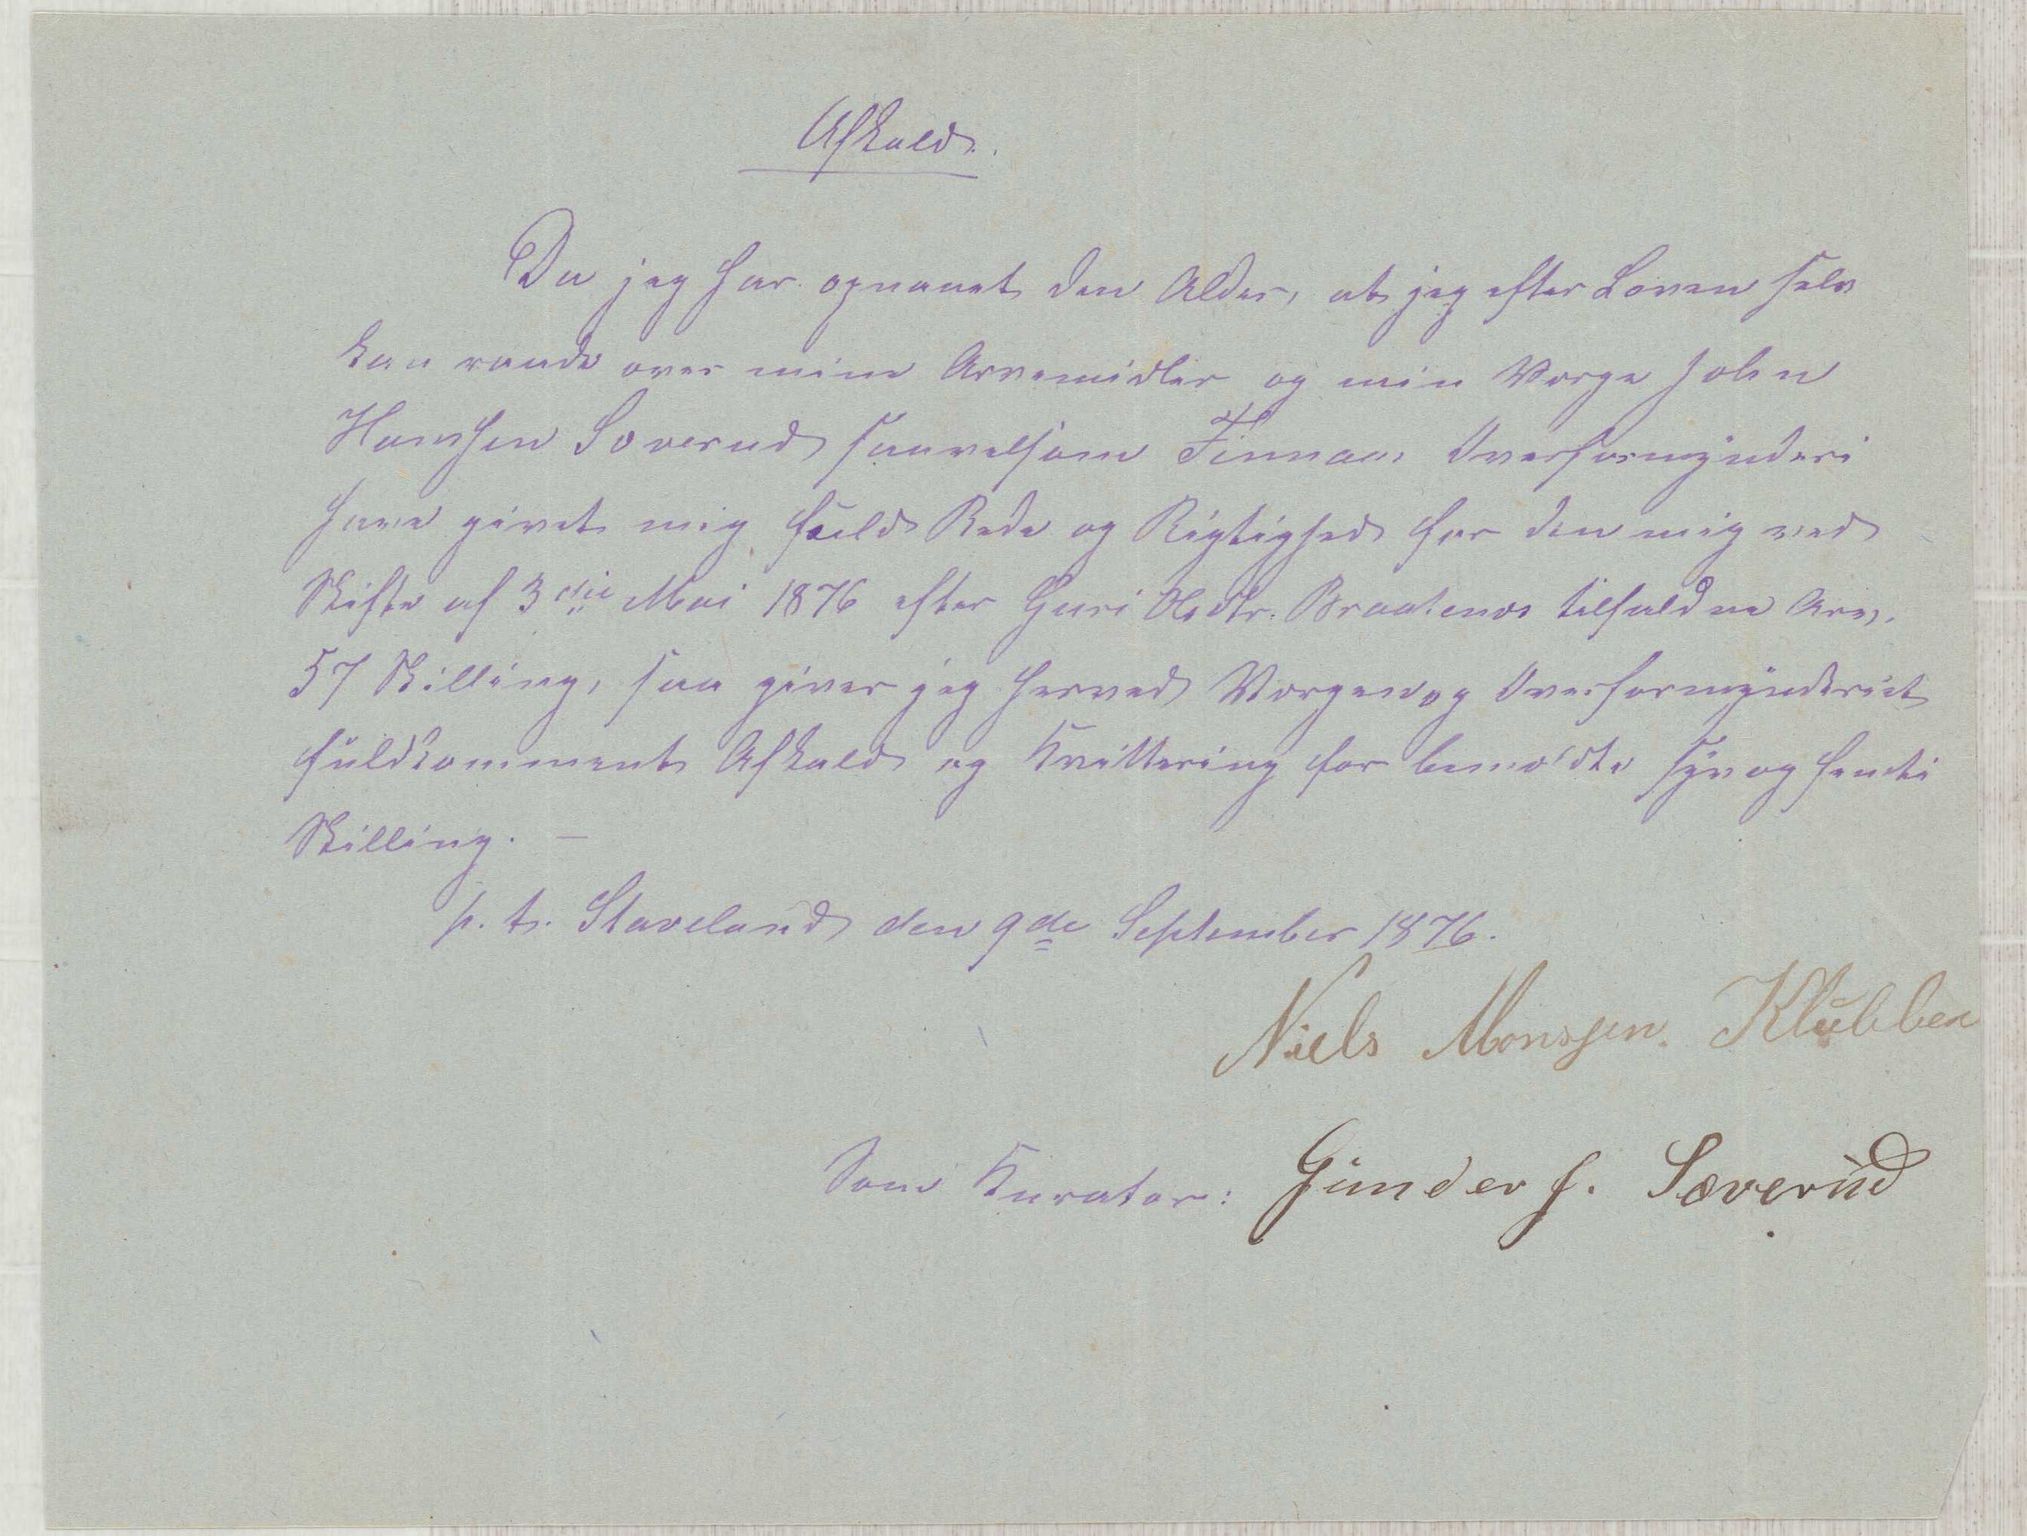 Afkald.
Da jeg har opnaaet den Alder, at jeg efter Loven selv
kan raade over mine Arvemidler og min Værge John
Hanssen Sæverud saavelsom Finnaas Overformynderi
have givet mig fuld Rede og Rigtighed for den mig ved
Skifte af 3die Mai 1876 efter Guri Olsdtr. Braatenes tilfaldne Arv,
57 Skilling, saa giver jeg herved Værgen og Overformynderiet
fuldkomment Afkald og Kvittering for benævdte syv og femti
Skilling. —
p. t. Staveland den 9de September 1876.
Niels Monssen. Klubben
Som Kurator: Gunder J. Sæverud